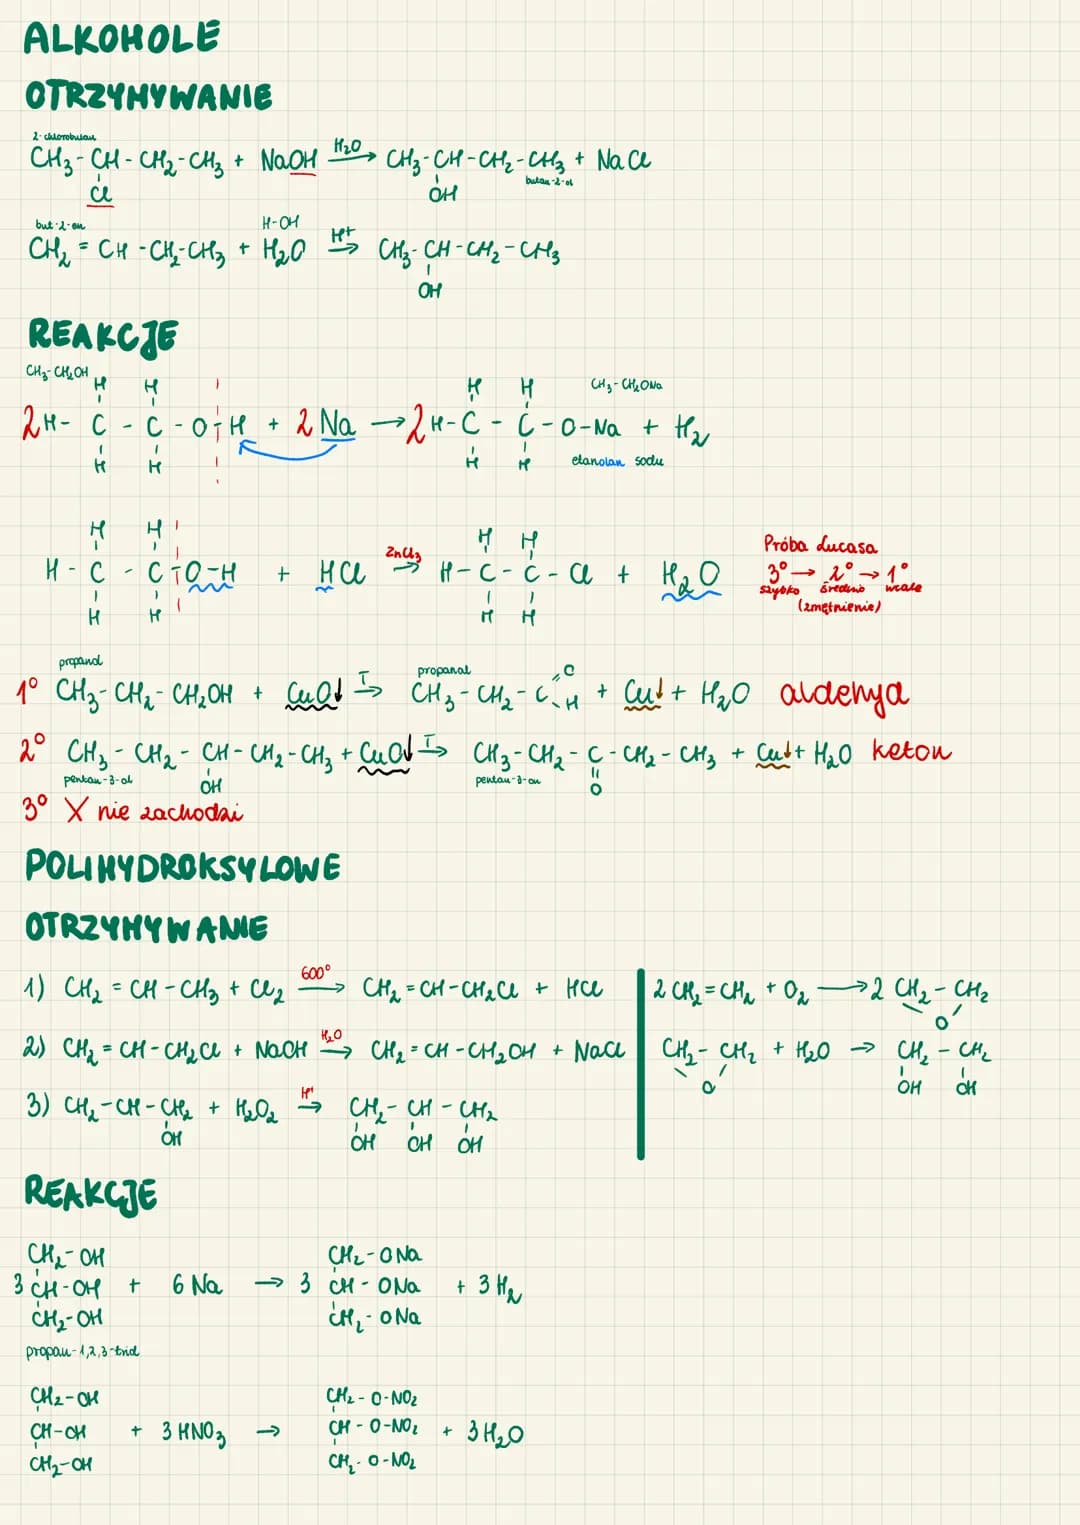 ALKOHOLE
OTRZYMYWANIE
2-chlorobutan
CH₃-CH-CH₂-CH₃ + NaOH —H₂O→ CH₃-CH-CH₂-CH₃ + NaCl
Cl OH butan-2-ol
but-2-en H-OH
CH₂=CH-CH₂-CH₃ + H₂O —H⁺→ CH₃-CH-CH₂-CH₃
OH
REAKCJE
CH₃-CH₂OH H H H H CH₃-CH₂ONa
2H-C-C-O-H + 2Na → 2H-C-C-O-Na + H₂
H H H H etanolan sodu
H H H H
H-C-C-O-H + HCl —ZnCl₂→ H-C-C-Cl + H₂O
H H H H
Próba Lucasa
3° → 2° → 1°
szybko średnio wcale
(zmętnienie)
propanol propanal O
1° CH₃-CH₂-CH₂OH + CuO↓ —T→ CH₃-CH₂-C-H + Cu↓ + H₂O aldehyd
2° CH₃-CH₂-CH-CH₂-CH₃ + CuO↓ —T→ CH₃-CH₂-C-CH₂-CH₃ + Cu↓ + H₂O keton
pentan-3-ol OH pentan-3-on O
3° X nie zachodzi
POLIHYDROKSYLOWE
OTRZYMYWANIE
1) CH₂=CH-CH₃ + Cl₂ —600°→ CH₂=CH-CH₂Cl + HCl
2) CH₂=CH-CH₂Cl + NaOH —H₂O→ CH₂=CH-CH₂OH + NaCl
3) CH₂-CH-CH₂ + H₂O₂ —H⁺→ CH₂-CH-CH₂
OH OH OH OH
2 CH₂=CH₂ + O₂ → 2 CH₂-CH₂
O
CH₂-CH₂ + H₂O → CH₂-CH₂
O OH OH
REAKCJE
CH₂-OH CH₂-ONa
3 CH-OH + 6 Na → 3 CH-ONa + 3H₂
CH₂-OH CH₂-ONa
propan-1,2,3-triol
CH₂-OH CH₂-O-NO₂
CH-OH + 3 HNO₃ → CH-O-NO₂ + 3H₂O
CH₂-OH CH₂-O-NO₂